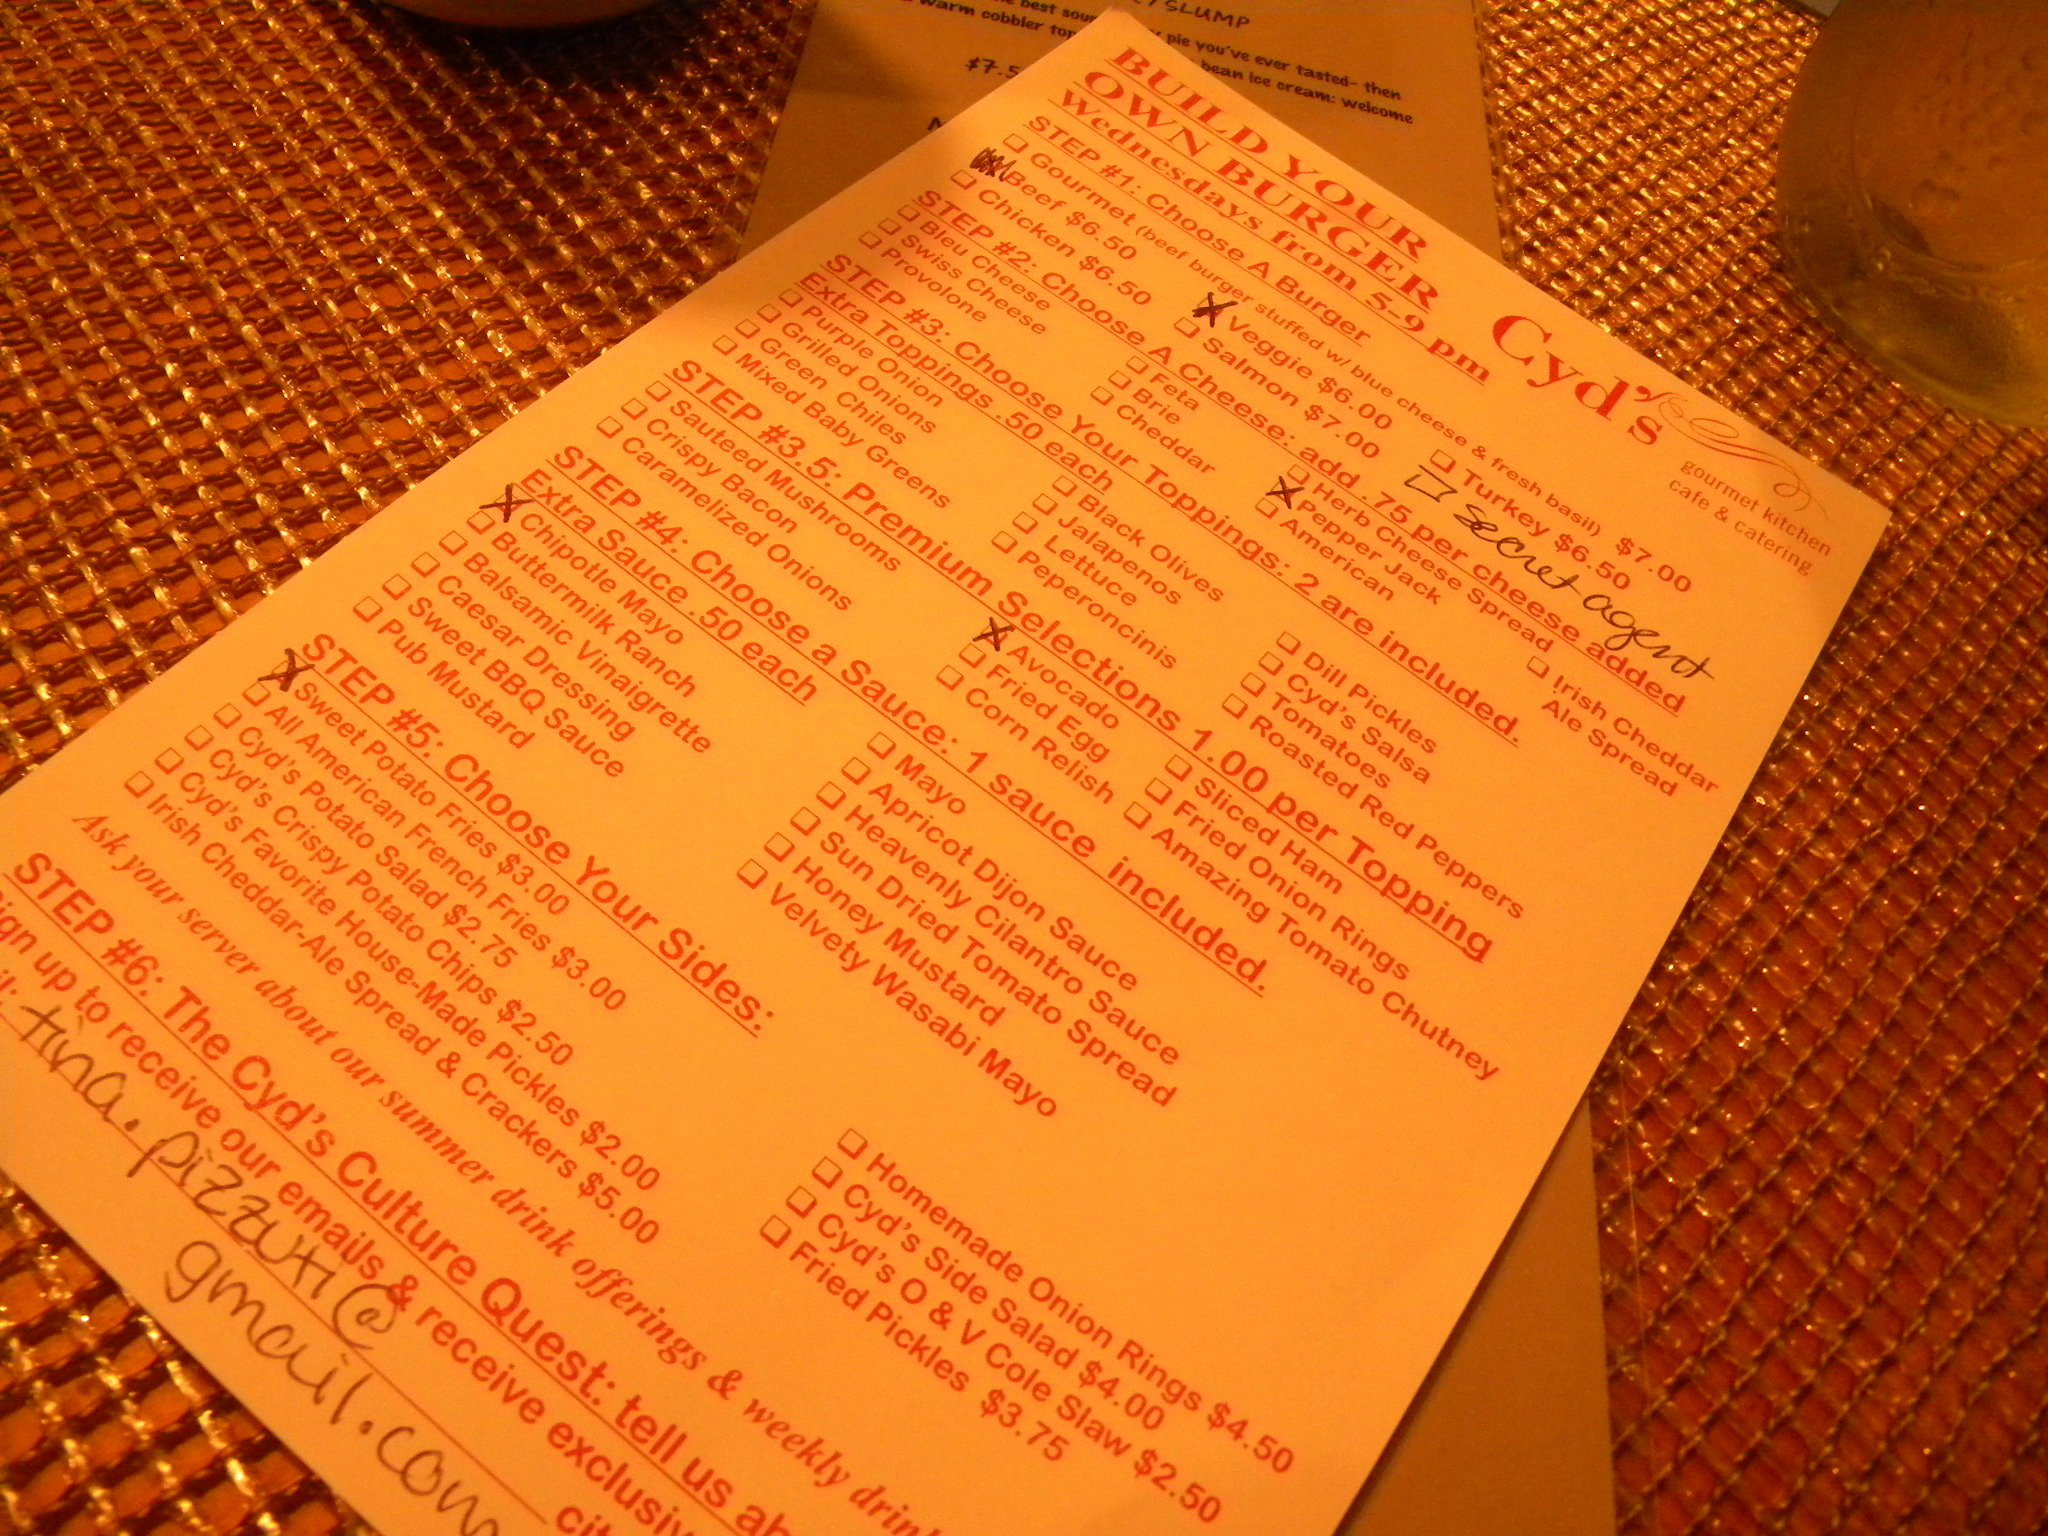 EY SLUMP
the best sour
pie you've ever tasted- then
warm cobbler top
bean ice cream: welcome
$7.5
BUILD YOUR
OWN BURGER
Wednesdays from 5-9 pm
Cyd's
gourmet kitchen
cafe & catering
STEP #1: Choose A Burger
Gourmet (beef burger stuffed w/ blue cheese & fresh basil) $7.00
Beef $6.50 Veggie $6.00 Turkey $6.50
Chicken $6.50 Salmon $7.00 secret agent
STEP #2: Choose A Cheese: add .75 per cheese added
Bleu Cheese Feta Herb Cheese Spread Irish Cheddar
Swiss Cheese Brie Pepper Jack Ale Spread
Provolone Cheddar American
STEP #3: Choose Your Toppings: 2 are included.
Extra Toppings .50 each
Purple Onion Black Olives Dill Pickles
Grilled Onions Jalapenos Cyd's Salsa
Green Chiles Lettuce Tomatoes
Mixed Baby Greens Peperoncinis Roasted Red Peppers
STEP #3.5: Premium Selections 1.00 per Topping
Sauteed Mushrooms Avocado Sliced Ham
Crispy Bacon Fried Egg Fried Onion Rings
Caramelized Onions Corn Relish Amazing Tomato Chutney
STEP #4: Choose a Sauce: 1 sauce included.
Extra Sauce .50 each
Chipotle Mayo Mayo
Buttermilk Ranch Apricot Dijon Sauce
Balsamic Vinaigrette Heavenly Cilantro Sauce
Caesar Dressing Sun Dried Tomato Spread
Sweet BBQ Sauce Honey Mustard
Pub Mustard Velvety Wasabi Mayo
STEP #5: Choose Your Sides:
Sweet Potato Fries $3.00 Homemade Onion Rings $4.50
All American French Fries $3.00 Cyd's Side Salad $4.00
Cyd's Potato Salad $2.75 Cyd's O & V Cole Slaw $2.50
Cyd's Crispy Potato Chips $2.50 Fried Pickles $3.75
Cyd's Favorite House-Made Pickles $2.00
Irish Cheddar-Ale Spread & Crackers $5.00
Ask your server about our summer drink offerings & weekly drin
STEP #6: The Cyd's Culture Quest: tell us ab
ign up to receive our emails & receive exclusiv
tina.pizzuti@
gmail.com